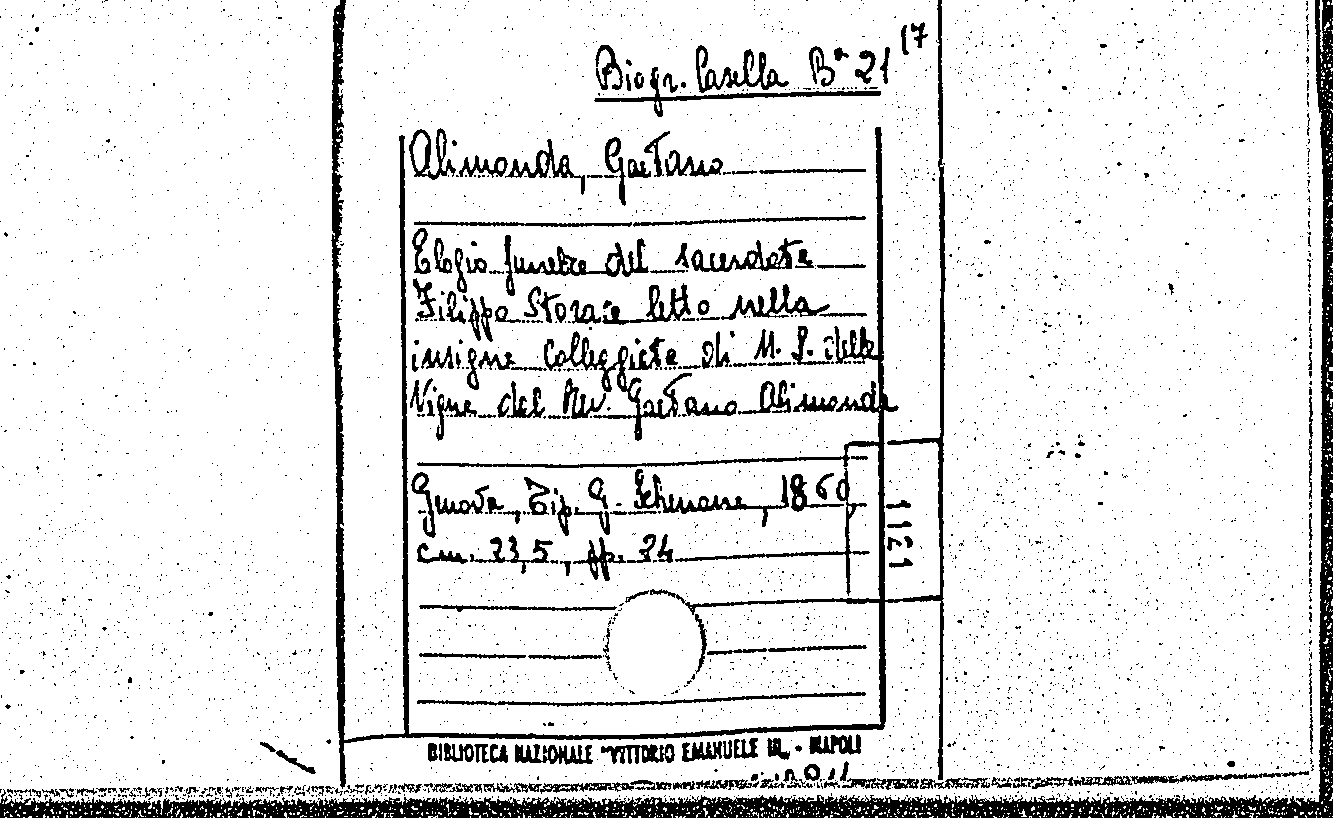 Biogr. Casella Bª 21 17
Alimonda, Gaetano
Elogio funebre del sacerdote
Filippo Storace letto nella
insigne Colleggiata di N. S. delle
Vigne del Rev. Gaetano Alimonda
Genova, Tip. G. Schenone, 1860,
cm. 23,5, pp. 24
1121
BIBLIOTECA NAZIONALE "VITTORIO EMANUELE III„ - NAPOLI